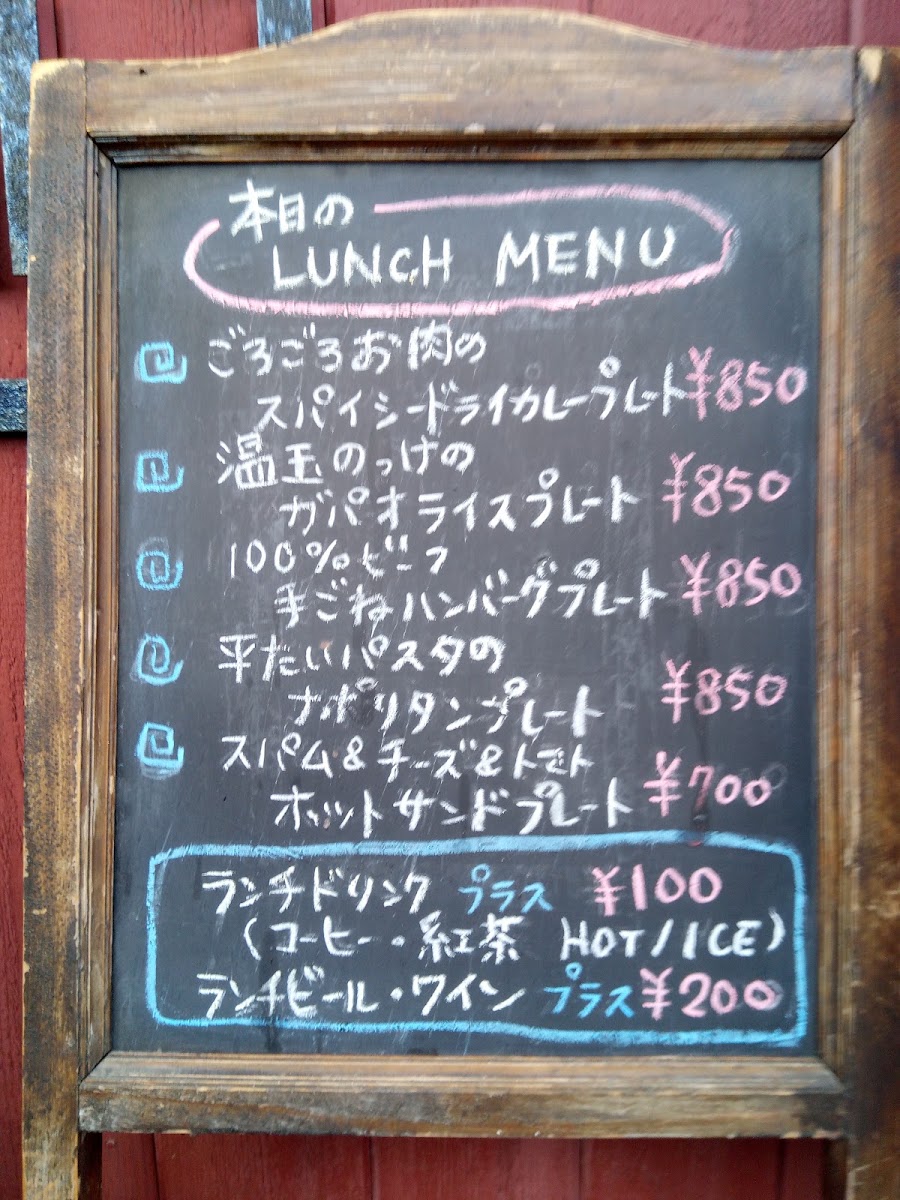 本日の
LUNCH MENU
ごろごろお肉の
スパイシードライカレープレート ¥850
温玉のっけの
ガパオライスプレート ¥850
100%ビーフ
手ごねハンバーグプレート ¥850
平たいパスタの
ナポリタンプレート ¥850
スパム&チーズ&トマト
ホットサンドプレート ¥700
ランチドリンク プラス ¥100
(コーヒー・紅茶 HOT/ICE)
ランチビール・ワイン プラス ¥200